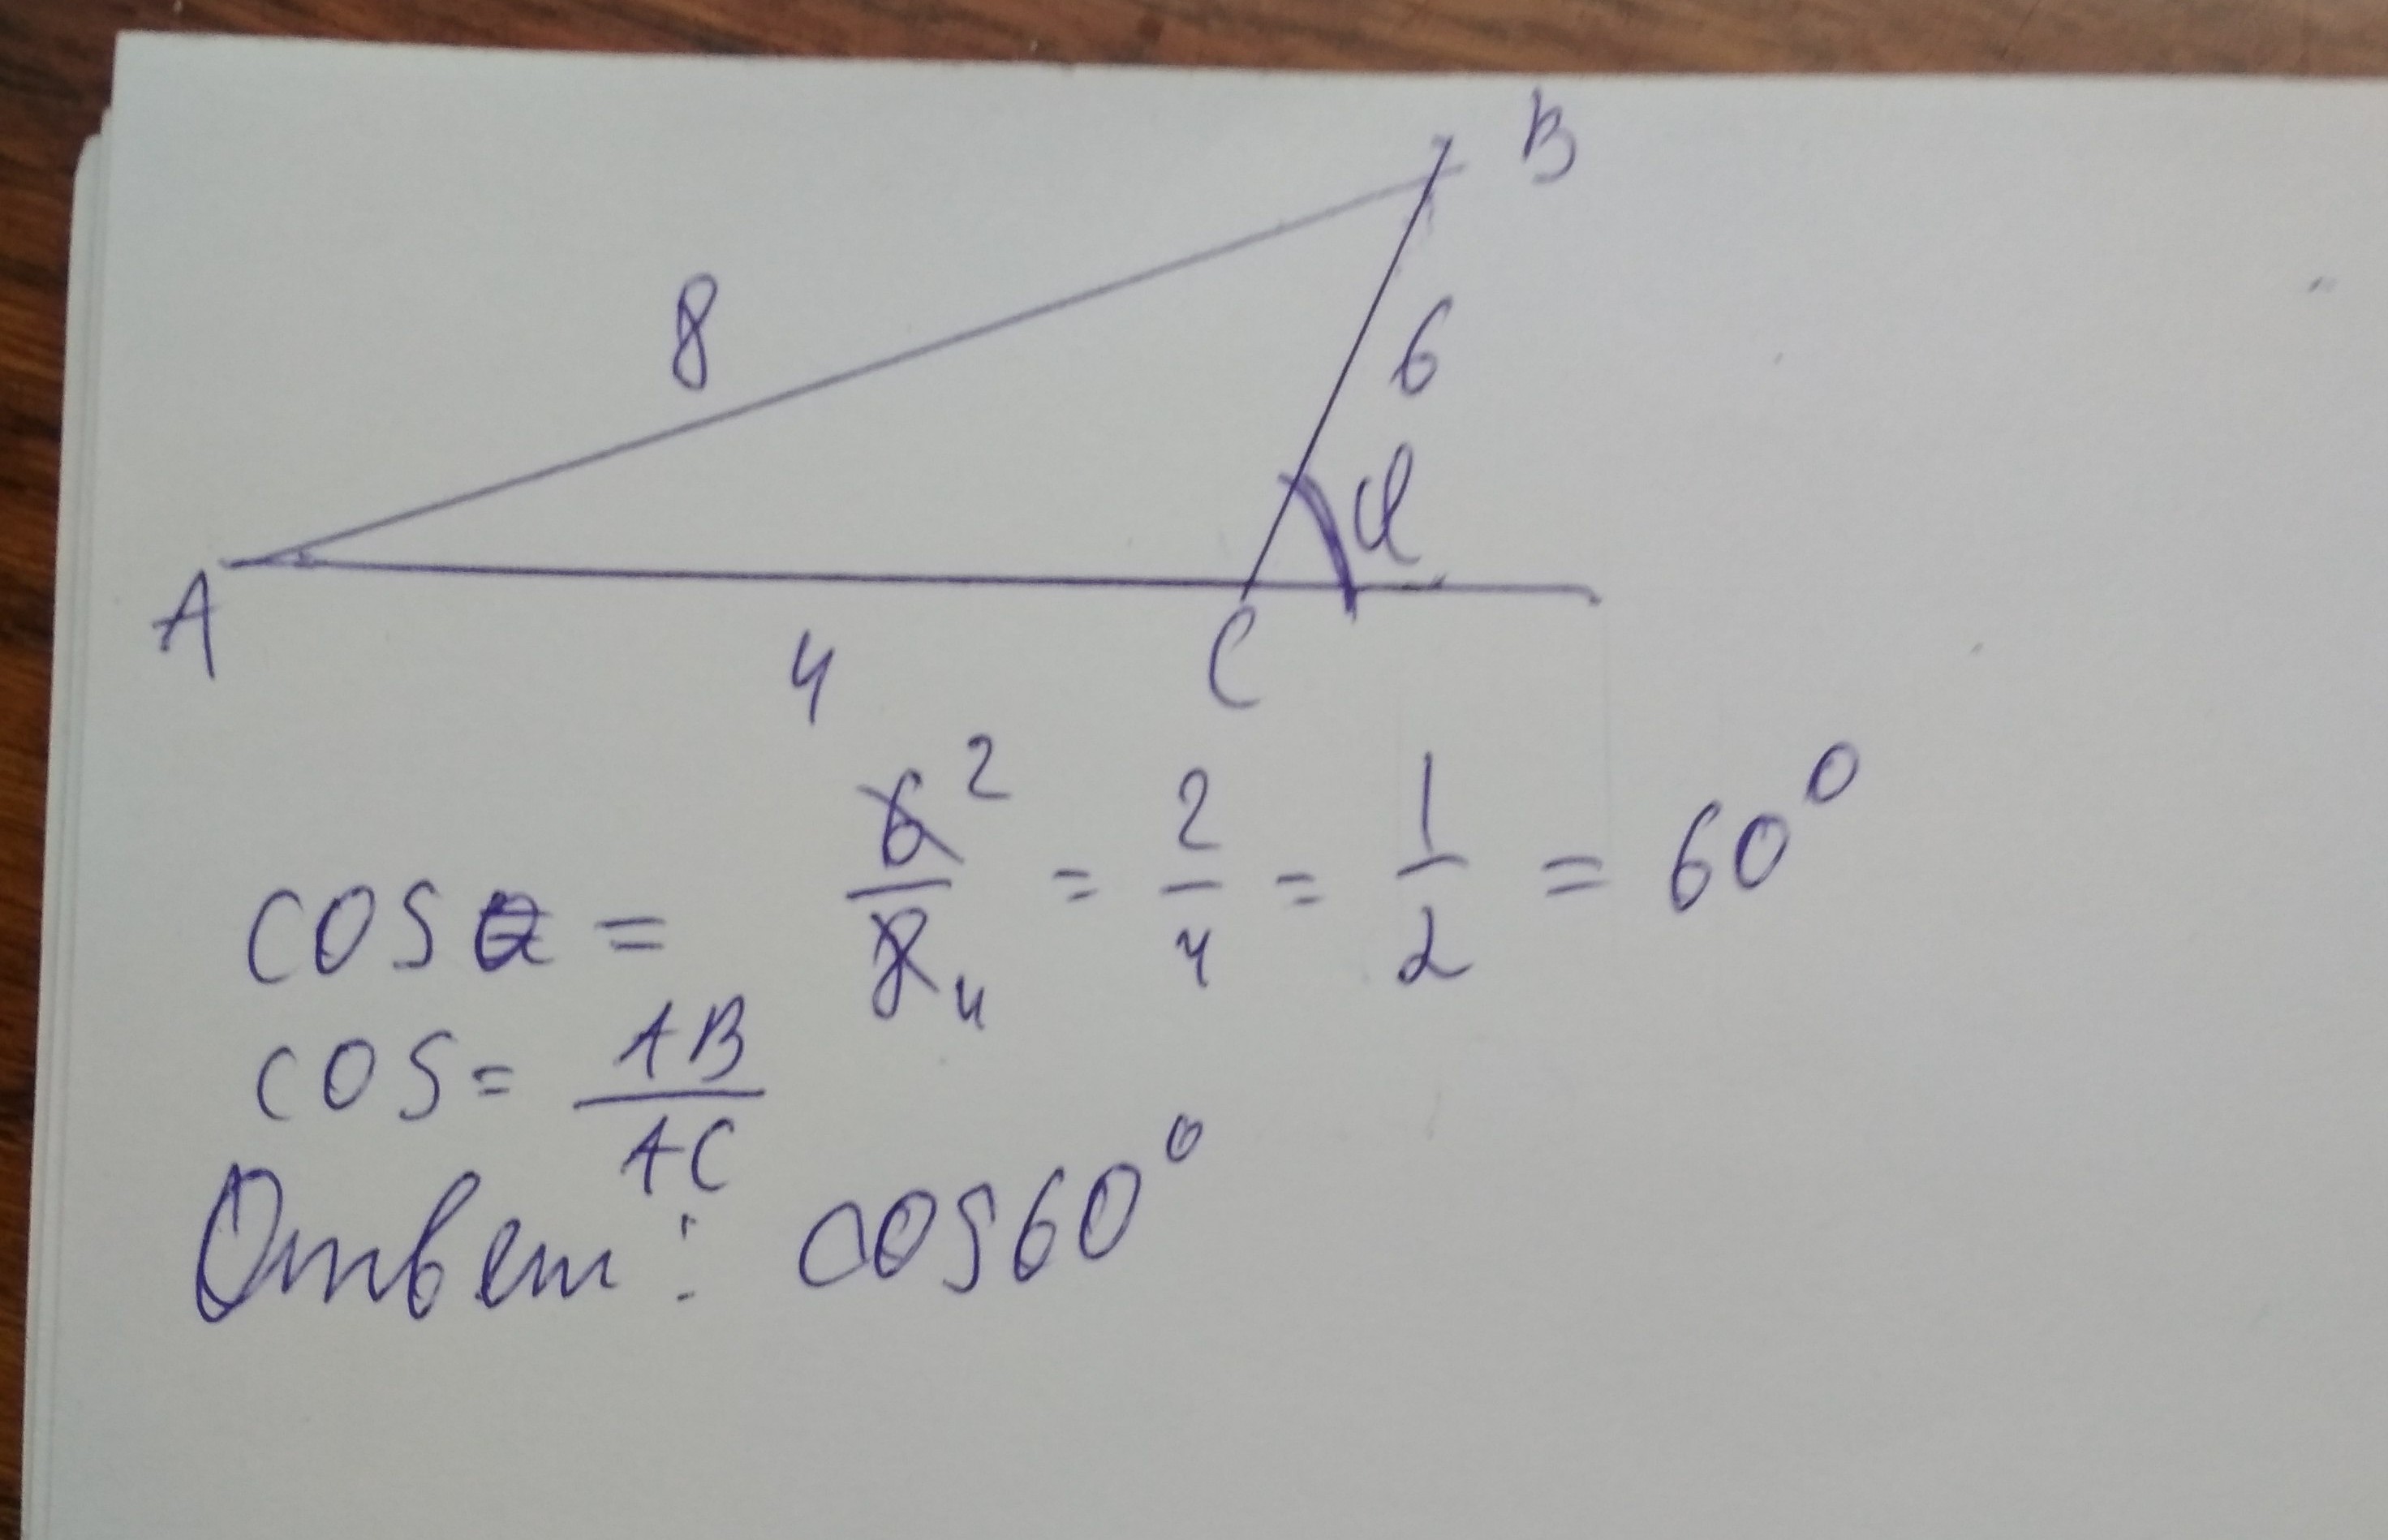 B
8
6
α
A
4
C
cos α = 6/8 2 4 = 2/4 = 1/2 = 60°
cos = AB/AC
Ответ: cos60°